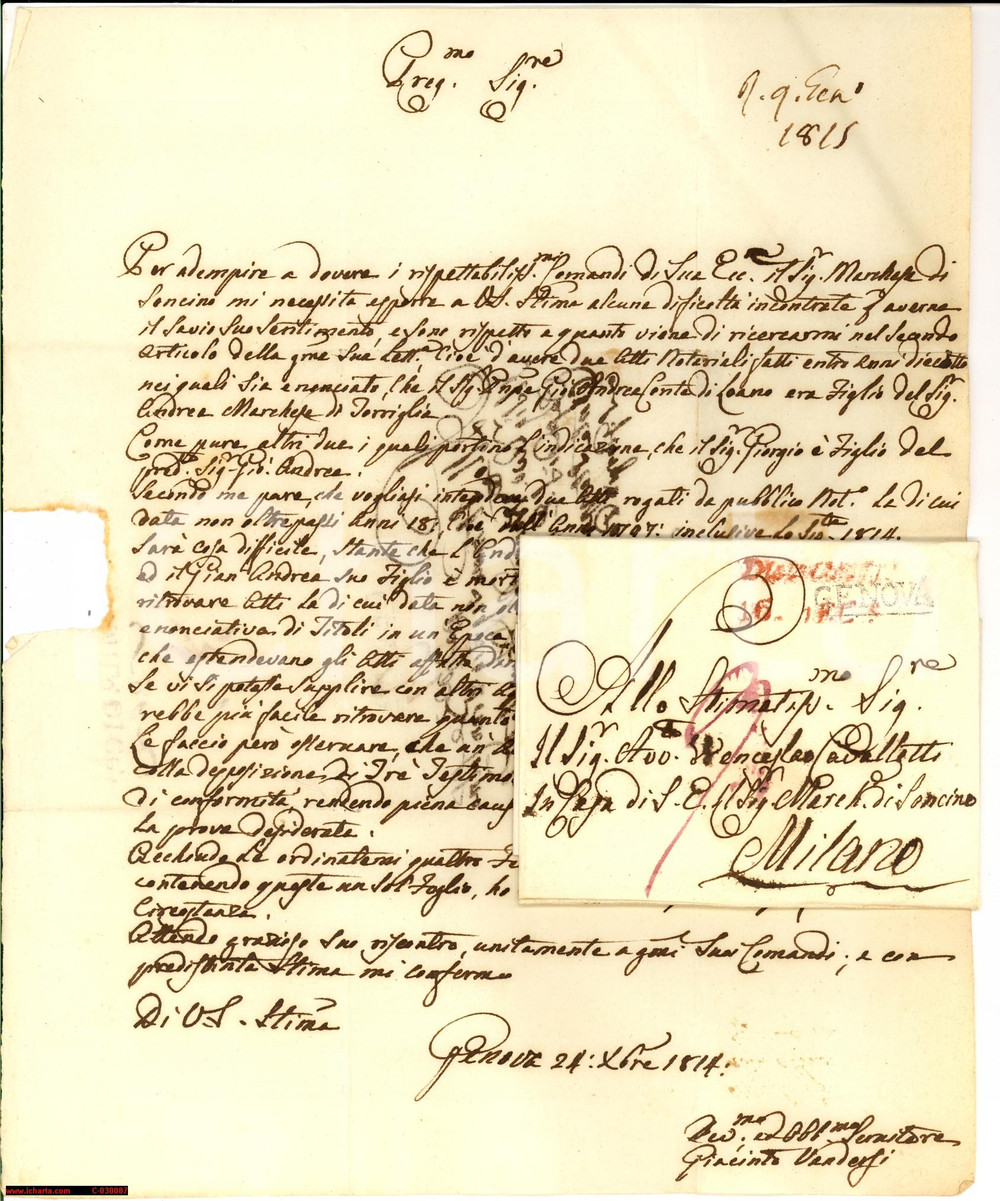 Preg.mo Sig.re
R. 9. Gen.o
1815
Per adempire a dovere i rispettabiliss.mi Comandi di Sua Ecc.a il Sig.r Marchese di
Soncino mi necessita esporre a V.S. Stima alcune dificoltà incontrate p averne
il Savio Suo Sentimento, e sono rispetto a quanto viene di ricercarmi nel Secondo
articolo della gma Sua Lett.a Cioè d'avere due Atti Notariali fatti entro anni dieciotto
nei quali Sia enonciato, Che il Sig. Pnpe Gio: Andrea Conte di Loano era Figlio del Sig.r
Andrea Marchese di Torriglia
Come pure altri due i quali portino l'indicazione, che il Sig.r Giorgio è Figlio del
pred.o Sig.r Gio: Andrea.
Secondo me pare, che vogliasi intendere due Atti rogati da pubblico Not.o La di cui
data non oltrepassi Anni 18: Cioè dall' Anno 1797: inclusive Lo 1814.
Sarà cosa difficile, Stante che L'And
ed il Gian Andrea suo Figlio è mort
ritrovare Atti La di cui data non ol
enonciativa di Titoli in un Epoca
che estendevano gli Atti
Se vi si potesse Supplire con altri
rebbe più facile ritrovare quanto
Le faccio però osservare, che un
colla deposizione di Tre Testimo
di conformità, rendendo piena
La prova desiderata.
Acchiude Le ordinatemi quattro
contenendo queste un Sol Foglio, ho
Circostanza.
Attendo grazioso Suo riscontro, unitamente a gmi Suoi Comandi; e con
predistinta Stima mi confermo
Di V.S. Stima
Genova 24: Xbre 1814:
Dev.mo ed Obb.mo Servitore
Giacinto Vandersi
GENOVA
Allo Stimatiss.mo Sig.re
Il Sig.r Avv. Wenceslao Cavalletti
In Casa di S. E. il Sig.r March. di Soncino
Milano
www.icharta.com C-030007